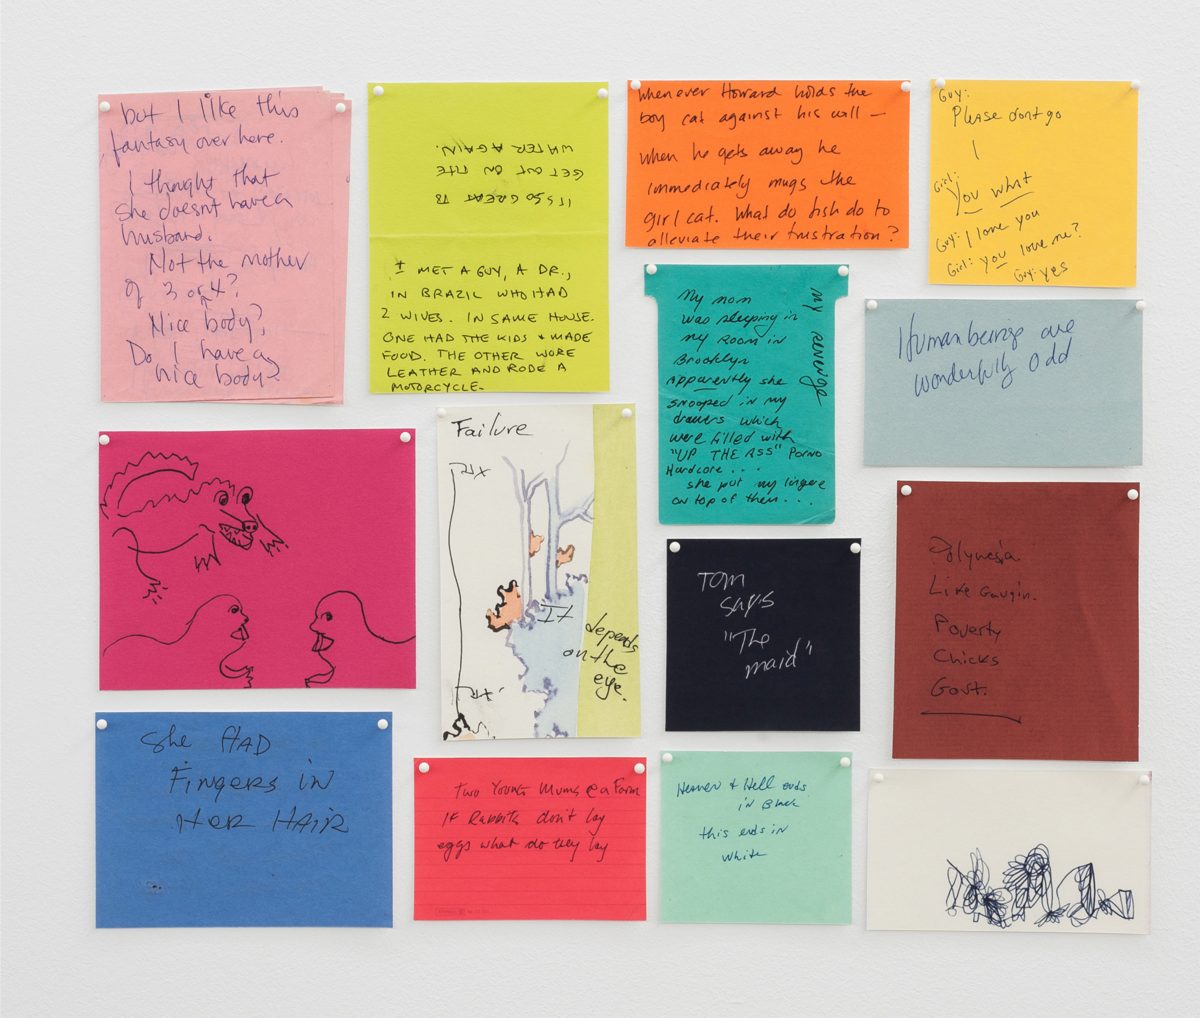 but I like this
fantasy over here.
I thought that
she doesnt have a
husband.
Not the mother
of 3 or 4?
Nice body?
Do I have a
nice body?
IT'S SO GREAT TO
GET OUT ON THE
WATER AGAIN.
I MET A GUY, A DR.,
IN BRAZIL WHO HAD
2 WIVES. IN SAME HOUSE.
ONE HAD THE KIDS & MADE
FOOD. THE OTHER WORE
LEATHER AND RODE A
MOTORCYCLE.
whenever Howard holds the
boy cat against his will –
when he gets away he
immediately mugs the
girl cat. What do fish do to
alleviate their frustration?
Guy:
Please dont go
Girl:
You what
Guy: I love you
Girl: you love me?
Guy: yes
My mom
was sleeping in
my room in
Brooklyn
apparently she
snooped in my
drawers which
were filled with
"UP THE ASS" Porno
Hardcore . . .
she put my lingere
on top of them . . .
my revenge
Human beings are
wonderfully odd
Failure
It depends
on the
eye.
TOM
says
"The
maid"
Polynesia
Like Gaugin.
Poverty
Chicks
Govt.
She HAD
FINGERS IN
HER HAIR
Two Young Mums @ a Farm
If Rabbits don't lay
eggs what do they lay
Heaven & Hell ends
in Black
this ends in
white